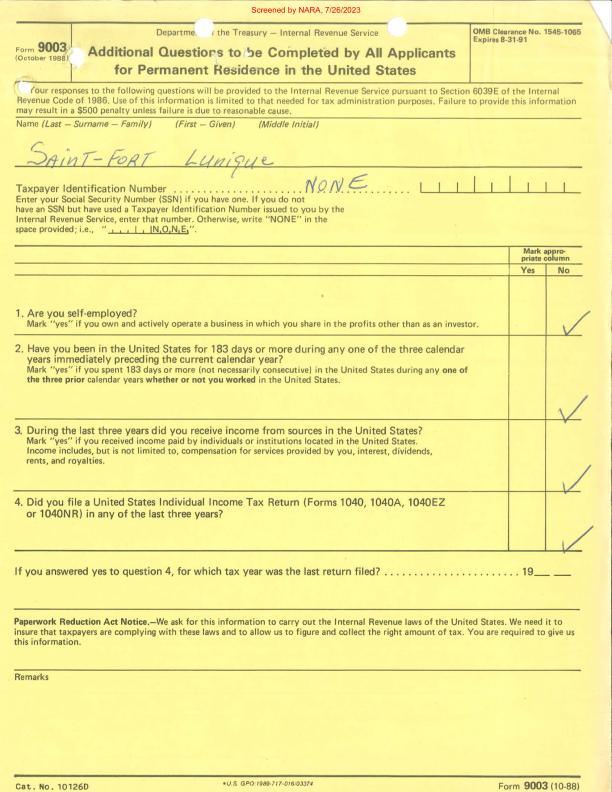 Screened by NARA, 7/26/2023
Form 9003
(October 1988)
the Treasury — Internal Revenue Service
Additional Questions to be Completed by All Applicants
for Permanent Residence in the United States
OMB Clearance No. 1545-1065
Expires 8-31-91
Your responses to the following questions will be provided to the Internal Revenue Service pursuant to Section 6039E of the Internal
Revenue Code of 1986. Use of this information is limited to that needed for tax administration purposes. Failure to provide this information
may result in a $500 penalty unless failure is due to reasonable cause.
Name (Last — Surname — Family) (First — Given) (Middle Initial)
SAINT-FORT Lunique
Taxpayer Identification Number .......................... NONE
Enter your Social Security Number (SSN) if you have one. If you do not
have an SSN but have used a Taxpayer Identification Number issued to you by the
Internal Revenue Service, enter that number. Otherwise, write "NONE" in the
space provided; i.e., "NONE".
Mark appro-
priate column
Yes No
1. Are you self-employed?
Mark "yes" if you own and actively operate a business in which you share in the profits other than as an investor. ✓
2. Have you been in the United States for 183 days or more during any one of the three calendar
years immediately preceding the current calendar year?
Mark "yes" if you spent 183 days or more (not necessarily consecutive) in the United States during any one of
the three prior calendar years whether or not you worked in the United States.
✓
3. During the last three years did you receive income from sources in the United States?
Mark "yes" if you received income paid by individuals or institutions located in the United States.
Income includes, but is not limited to, compensation for services provided by you, interest, dividends,
rents, and royalties.
✓
4. Did you file a United States Individual Income Tax Return (Forms 1040, 1040A, 1040EZ
or 1040NR) in any of the last three years?
✓
If you answered yes to question 4, for which tax year was the last return filed? ....................... 19__ __
Paperwork Reduction Act Notice.—We ask for this information to carry out the Internal Revenue laws of the United States. We need it to
insure that taxpayers are complying with these laws and to allow us to figure and collect the right amount of tax. You are required to give us
this information.
Remarks
Cat. No. 10126D
*U.S. GPO:1989-717-016/03374
Form 9003 (10-88)